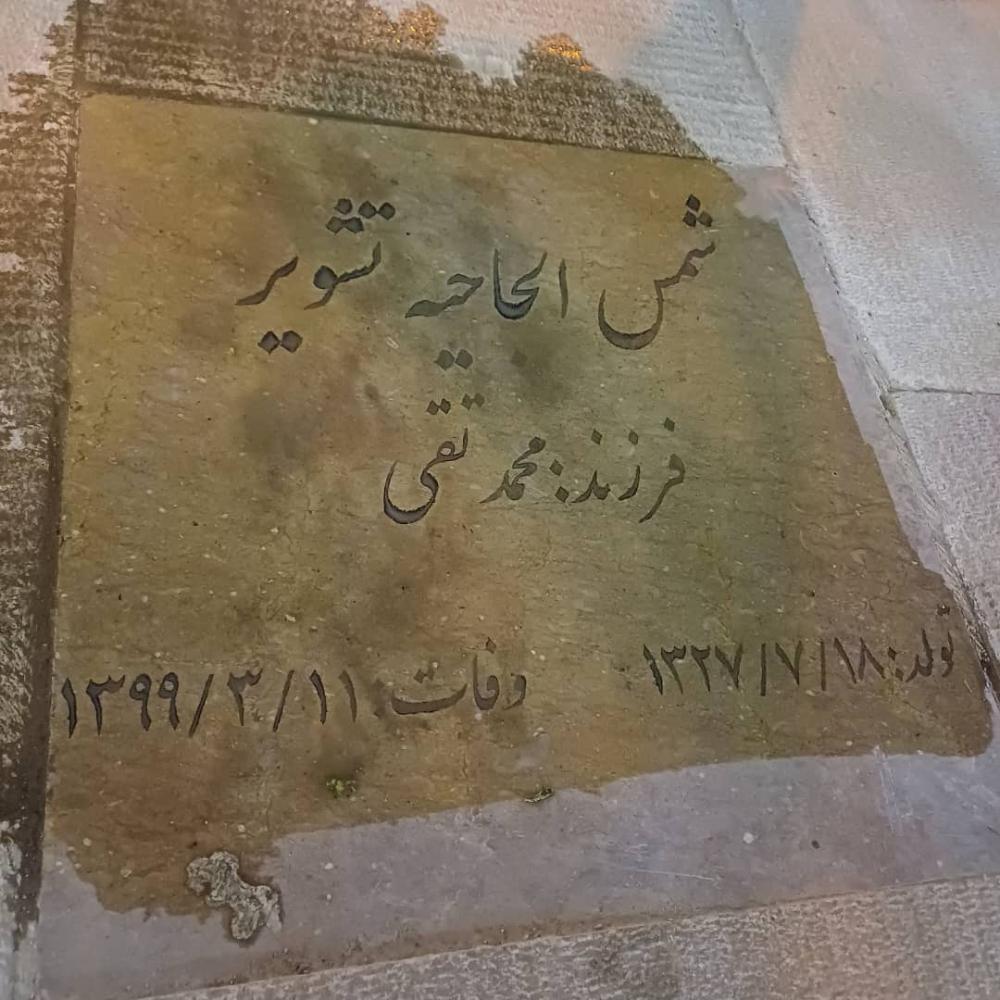 شمس الحاجیه تشویر
فرزند: محمد تقی
تولد: ۱۳۲۷/۷/۱۸ وفات: ۱۳۹۹/۳/۱۱